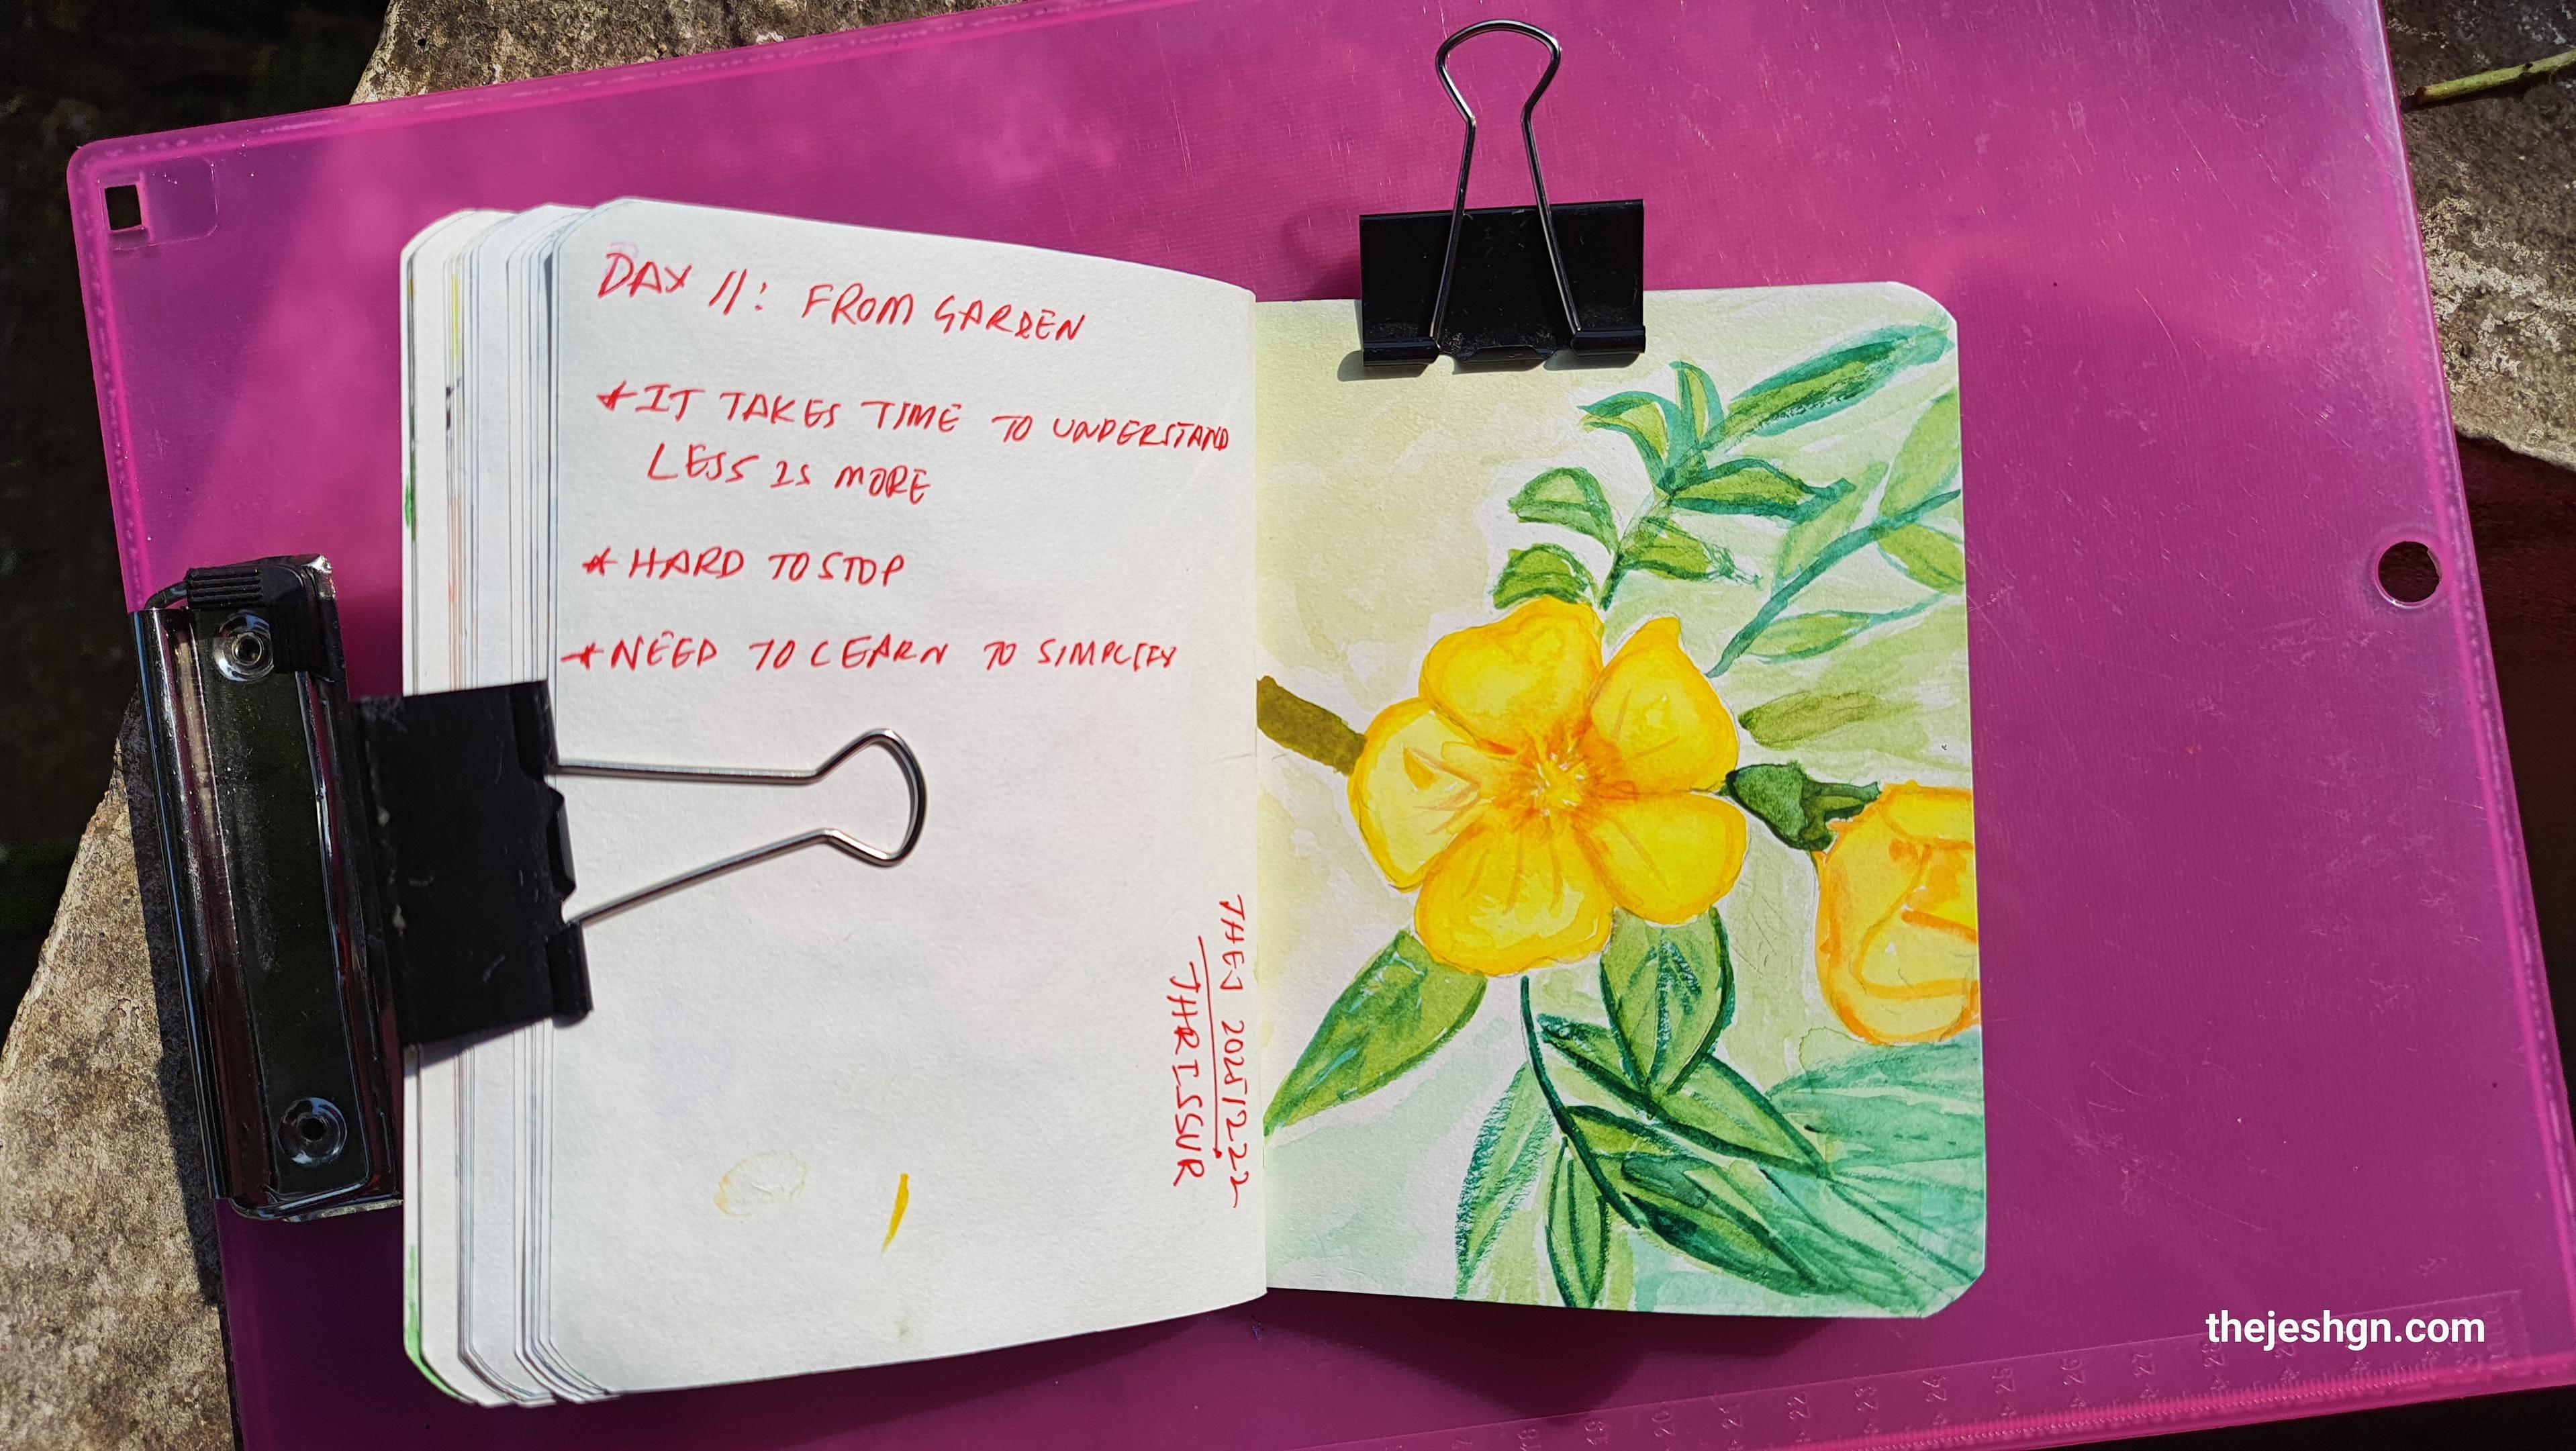 DAY 11: FROM GARDEN
* IT TAKES TIME TO UNDERSTAND
LESS IS MORE
* HARD TO STOP
* NEED TO LEARN TO SIMPLIFY
THEJ 20251222
THRISSUR
thejeshgn.com
18 19 20 21 22 23 24 25 26 27 28